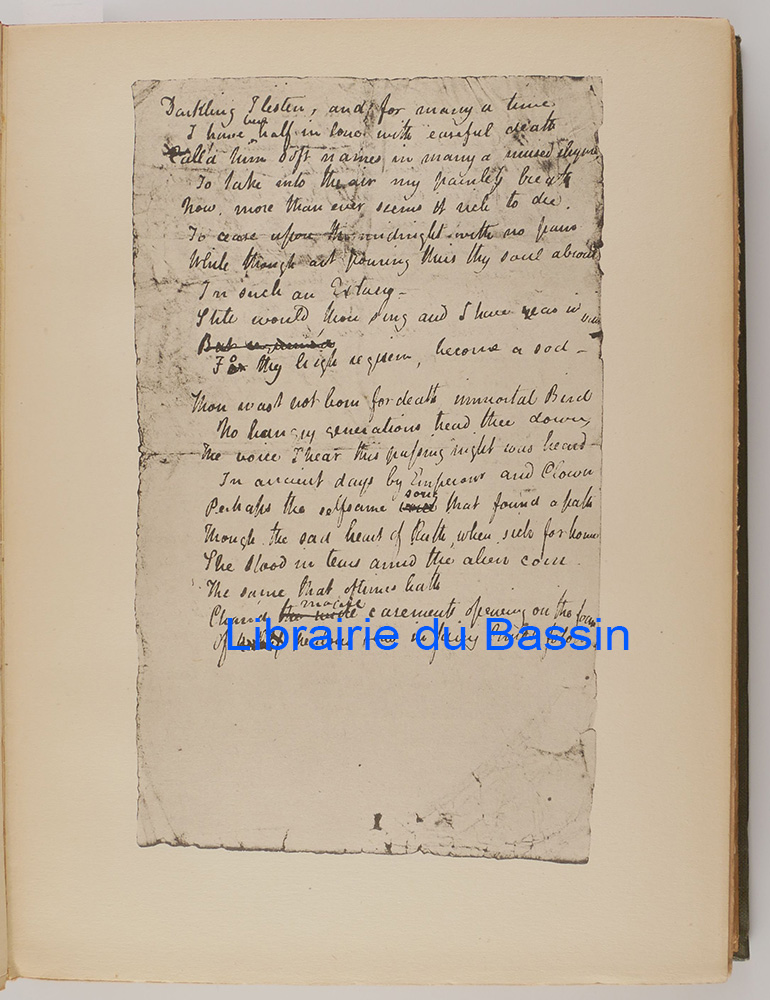 Darkling I listen, and, for many a time
I have been half in love with easeful death
Call'd him soft names in many a mused rhyme,
To take into the air my painless breath
Now, more than ever seems it rich to die.
To cease upon the midnight with no pain
While thou art pouring thus thy soul abroad
In such an Extacy –
Still would thou sing and I have ears in vain
But requiem'd
For thy high requiem, become a sod –
Thou wast not born for death immortal Bird
No hungry generations tread thee down,
The voice I hear this passing night was heard –
In ancient days by Emperour and Clown
Perhaps the selfsame song that found a path
Though the sad heart of Ruth, when sick for home
She stood in tears amid the alien corn.
The same that oftimes hath
Charm'd the wide magic casements opening on the foam
Of
Librairie du Bassin